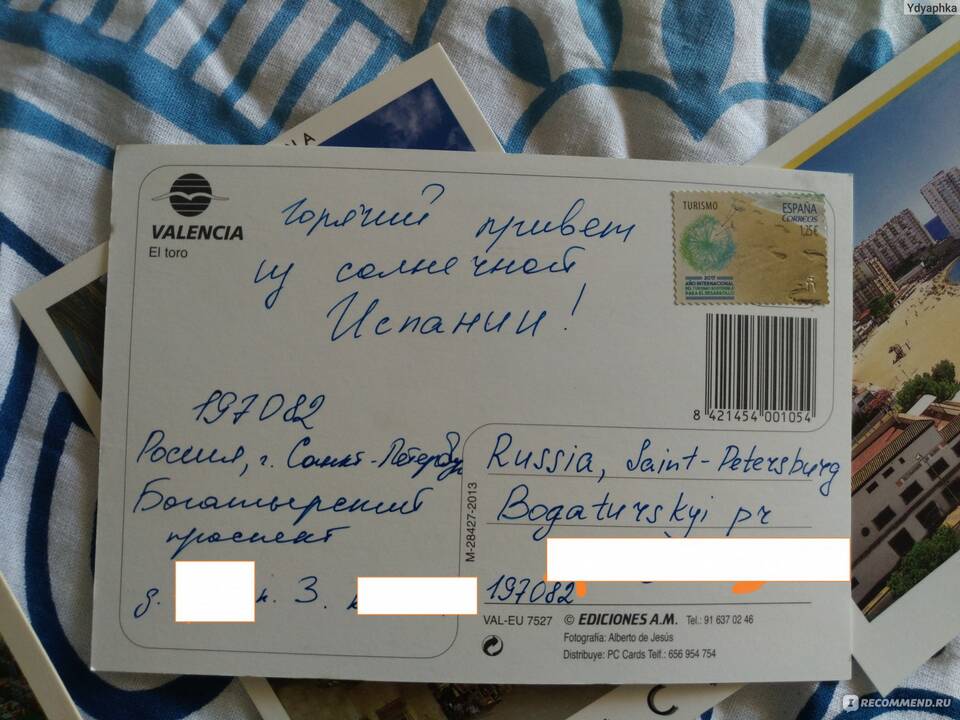 Ydyaphka
VALENCIA
El toro
Горячий привет
из солнечной
Испании!
TURISMO
ESPAÑA
CORREOS
1,25€
2017
AÑO INTERNACIONAL
DEL TURISMO SOSTENIBLE
PARA EL DESARROLLO
8 421454 001054
197082
Россия, г. Санкт-Петербург
Богатырский
проспект
д.
к. 3.
M-28427-2013
Russia, Saint-Petersburg
Bogaturskyi pr
197082
VAL-EU 7527 © EDICIONES A.M. Tel.: 91 637 02 46
Fotografía: Alberto de Jesús
Distribuye: PC Cards Telf.: 656 954 754
IRECOMMEND.RU